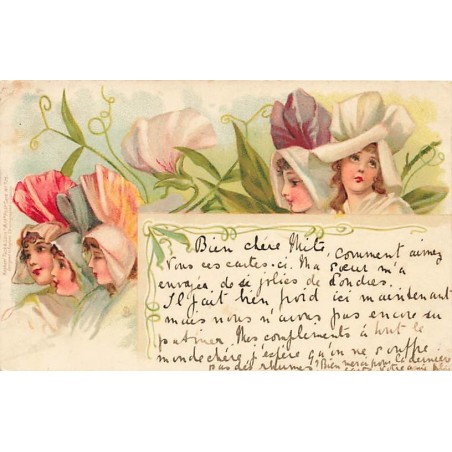 Bien chère Mits, comment aimez
vous ces cartes-ci. Ma sœur m'a
envoyé de si jolies de Londres
Il fait bien froid ici maintenant
mais nous n'avons pas encore su
patiner. Mes compléments à tout le
monde chère j'espère qu'on ne souffre
pas des rhumes. Bien merci pour la dernière
carte. Votre amie